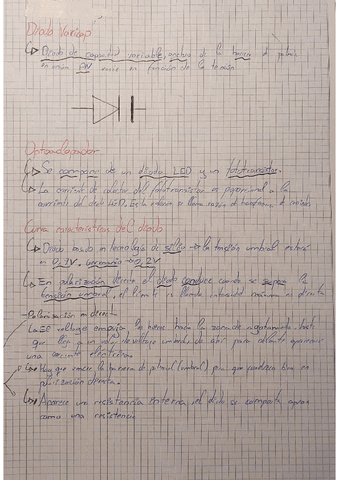 Diodo Varicap
Diodo de capacidad variable, anchura de la barrera de potencial
en unión PN varía en función de la tensión
Optoacoplador
Se compone de un diodo LED y un fototransistor.
La corriente de colector del fototransistor es proporcional a la
corriente del diodo LED. Esta relación se llama
Curva característica del diodo
Diodo basado en tecnología de silicio la tensión umbral
0,7V. Germanio 0,2V
En polarización directa el diodo conduce cuando se supera la
tensión umbral, el límite se llama intensidad máxima en directa
Polarización en directa
La voltage empuja los huecos hacia la zona de agotamiento hasta
que llega a un valor de voltage umbral de ahí para adelante aparece
una corriente eléctrica
Hay que vencer la barrera de potencial (umbral) para que conduzca bien en
polarización directa.
Aparece una resistencia interna, el diodo se comporta
como una resistencia